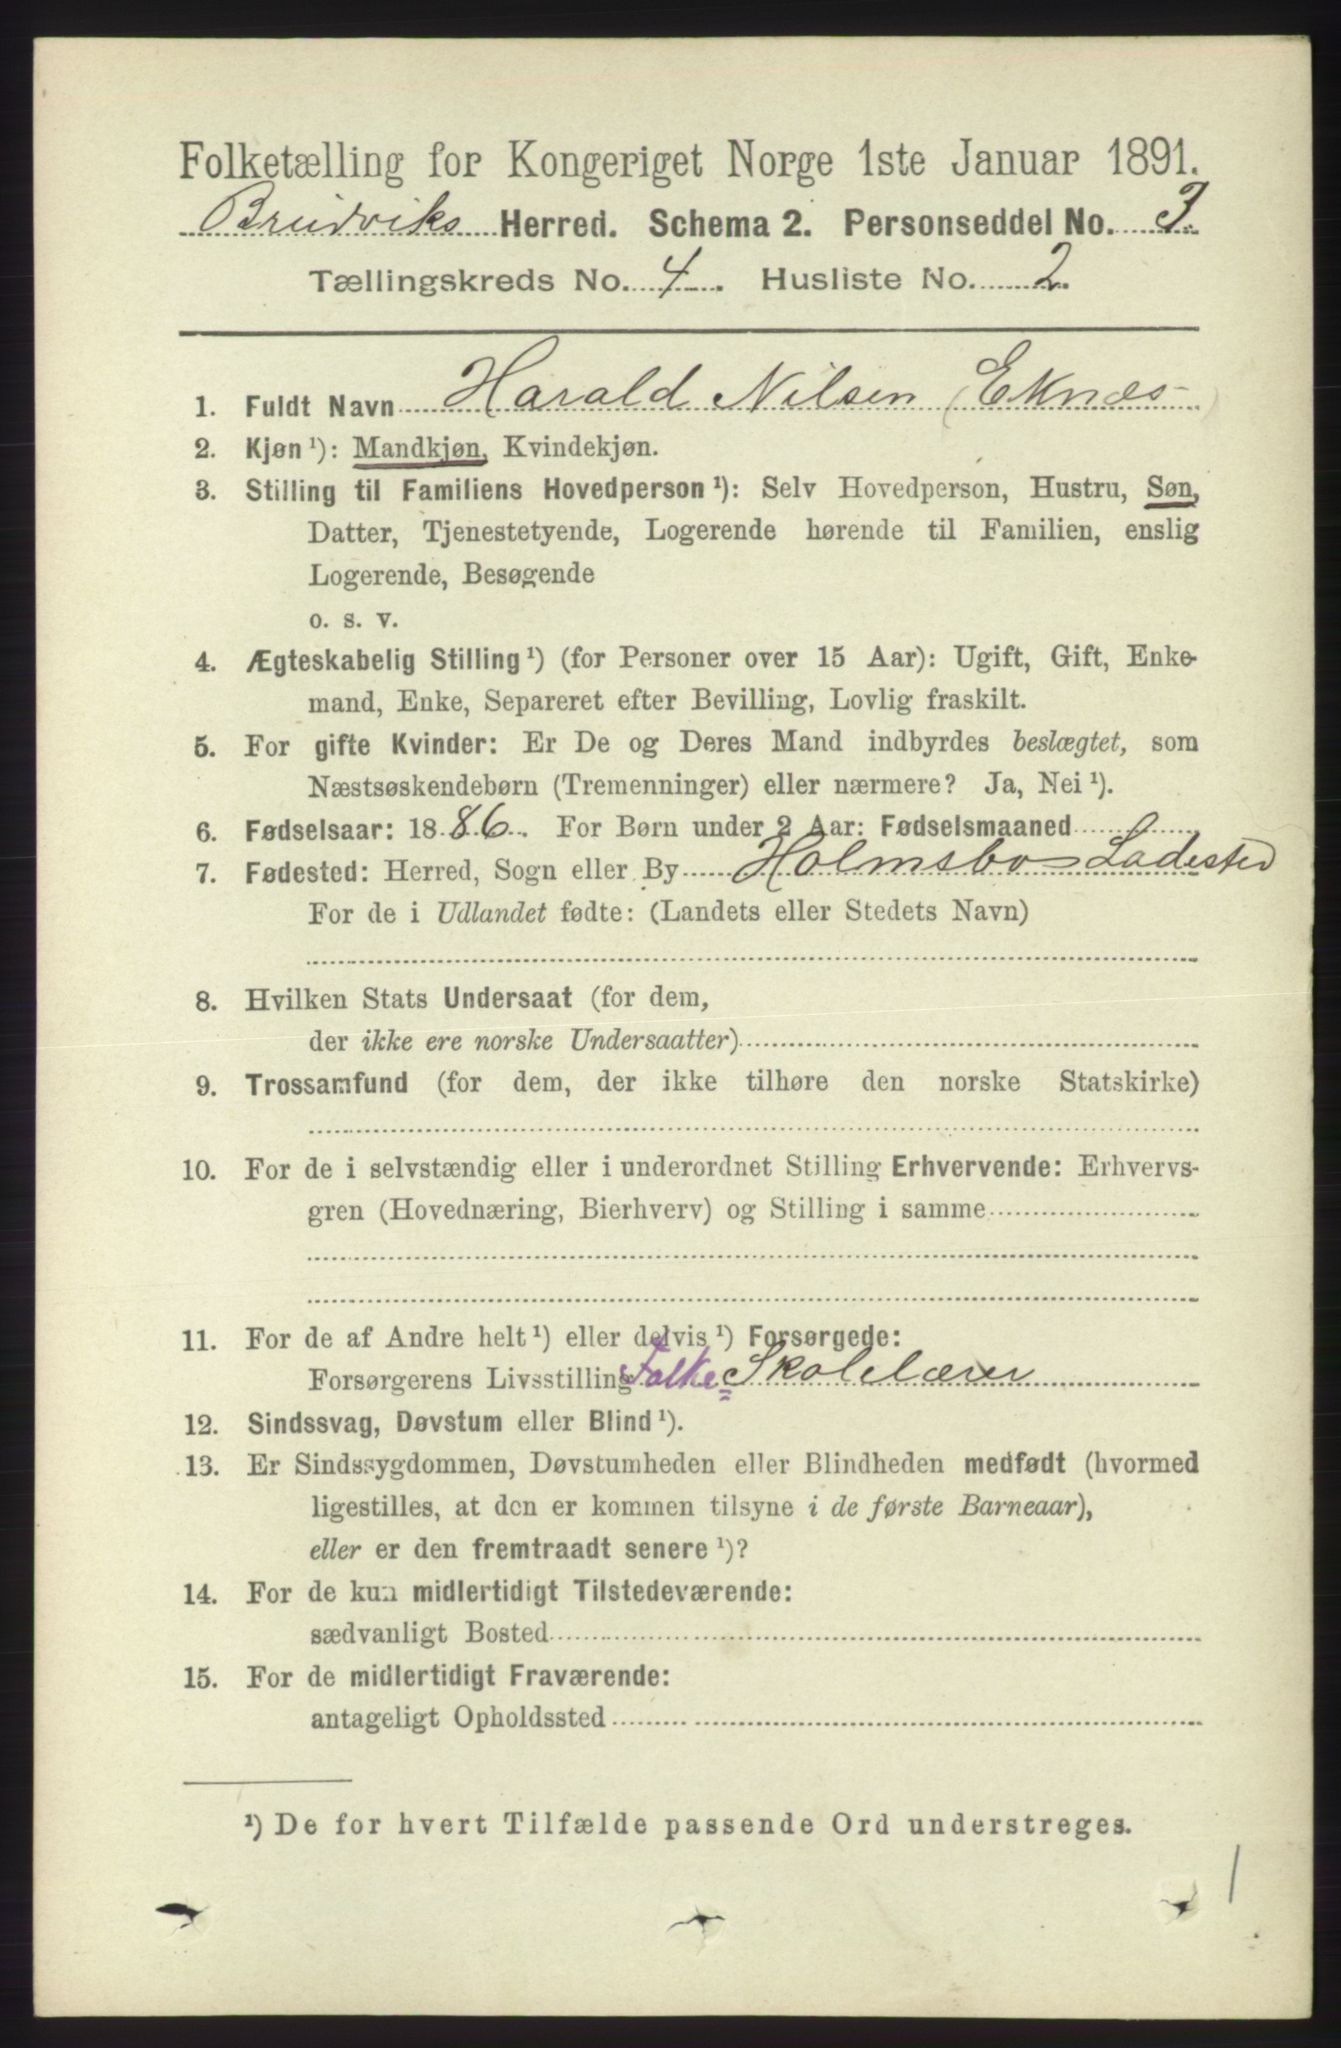 Folketælling for Kongeriget Norge 1ste Januar 1891.
Bruviks Herred. Schema 2. Personseddel No. 3.
Tællingskreds No. 4. Husliste No. 2.
1. Fuldt Navn Harald Nilsen (Eknæs)
2. Kjøn ¹): Mandkjøn, Kvindekjøn.
3. Stilling til Familiens Hovedperson ¹): Selv Hovedperson, Hustru, Søn,
Datter, Tjenestetyende, Logerende hørende til Familien, enslig
Logerende, Besøgende
o. s. v.
4. Ægteskabelig Stilling ¹) (for Personer over 15 Aar): Ugift, Gift, Enke-
mand, Enke, Separeret efter Bevilling, Lovlig fraskilt.
5. For gifte Kvinder: Er De og Deres Mand indbyrdes beslægtet, som
Næstsøskendebørn (Tremenninger) eller nærmere? Ja, Nei ¹).
6. Fødselsaar: 1886. For Børn under 2 Aar: Fødselsmaaned
7. Fødested: Herred, Sogn eller By Holmsbo Ladested
For de i Udlandet fødte: (Landets eller Stedets Navn)
8. Hvilken Stats Undersaat (for dem,
der ikke ere norske Undersaatter)
9. Trossamfund (for dem, der ikke tilhøre den norske Statskirke)
10. For de i selvstændig eller i underordnet Stilling Erhvervende: Erhvervs-
gren (Hovednæring, Bierhverv) og Stilling i samme
11. For de af Andre helt ¹) eller delvis ¹) Forsørgede:
Forsørgerens Livsstilling Folke= Skolelærer
12. Sindssvag, Døvstum eller Blind ¹).
13. Er Sindssygdommen, Døvstumheden eller Blindheden medfødt (hvormed
ligestilles, at den er kommen tilsyne i de første Barneaar),
eller er den fremtraadt senere ¹)?
14. For de kun midlertidigt Tilstedeværende:
sædvanligt Bosted
15. For de midlertidigt Fraværende:
antageligt Opholdssted
¹) De for hvert Tilfælde passende Ord understreges.
1